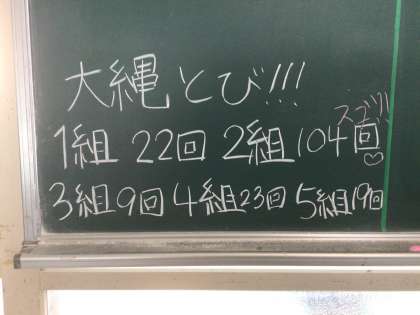 大縄とび!!!
スゴ!!!
1組 22回 2組 104回♡
3組9回 4組23回 5組19回